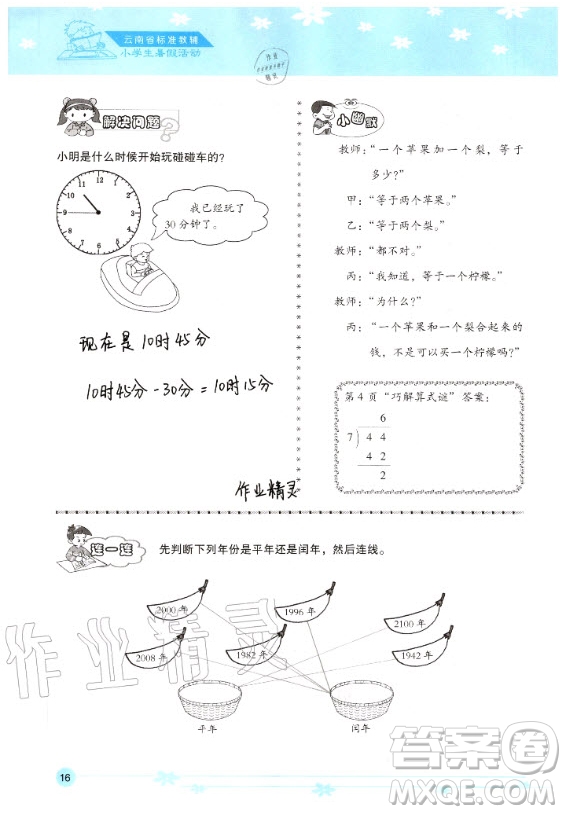 云南省标准教辅
小学生暑假活动
作业
精灵
解决问题?
小明是什么时候开始玩碰碰车的?
我已经玩了
30分钟了。
现在是10时45分
10时45分-30分=10时15分
作业精灵
小幽默
教师:“一个苹果加一个梨,等于
多少?”
甲:“等于两个苹果。”
乙:“等于两个梨。”
教师:“都不对。”
丙:“我知道,等于一个柠檬。”
教师:“为什么?”
丙:“一个苹果和一个梨合起来的
钱,不是可以买一个柠檬吗?”
第4页“巧解算式谜”答案:
6
7 4 4
4 2
2
连一连
先判断下列年份是平年还是闰年,然后连线。
2000年
1996年
2100年
2008年
1982年
1942年
平年
闰年
作业精灵
16
答案圈
MXQE.COM